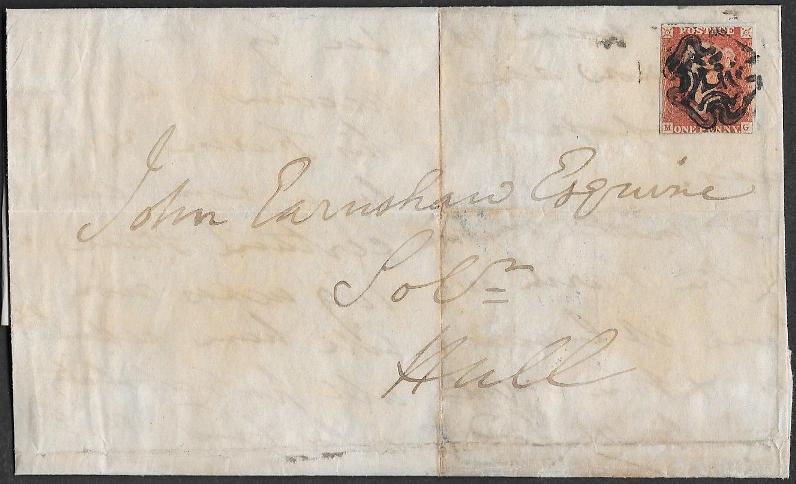 POSTAGE
M G
ONE PENNY
John Earnshaw Esquire
Solr
Hull